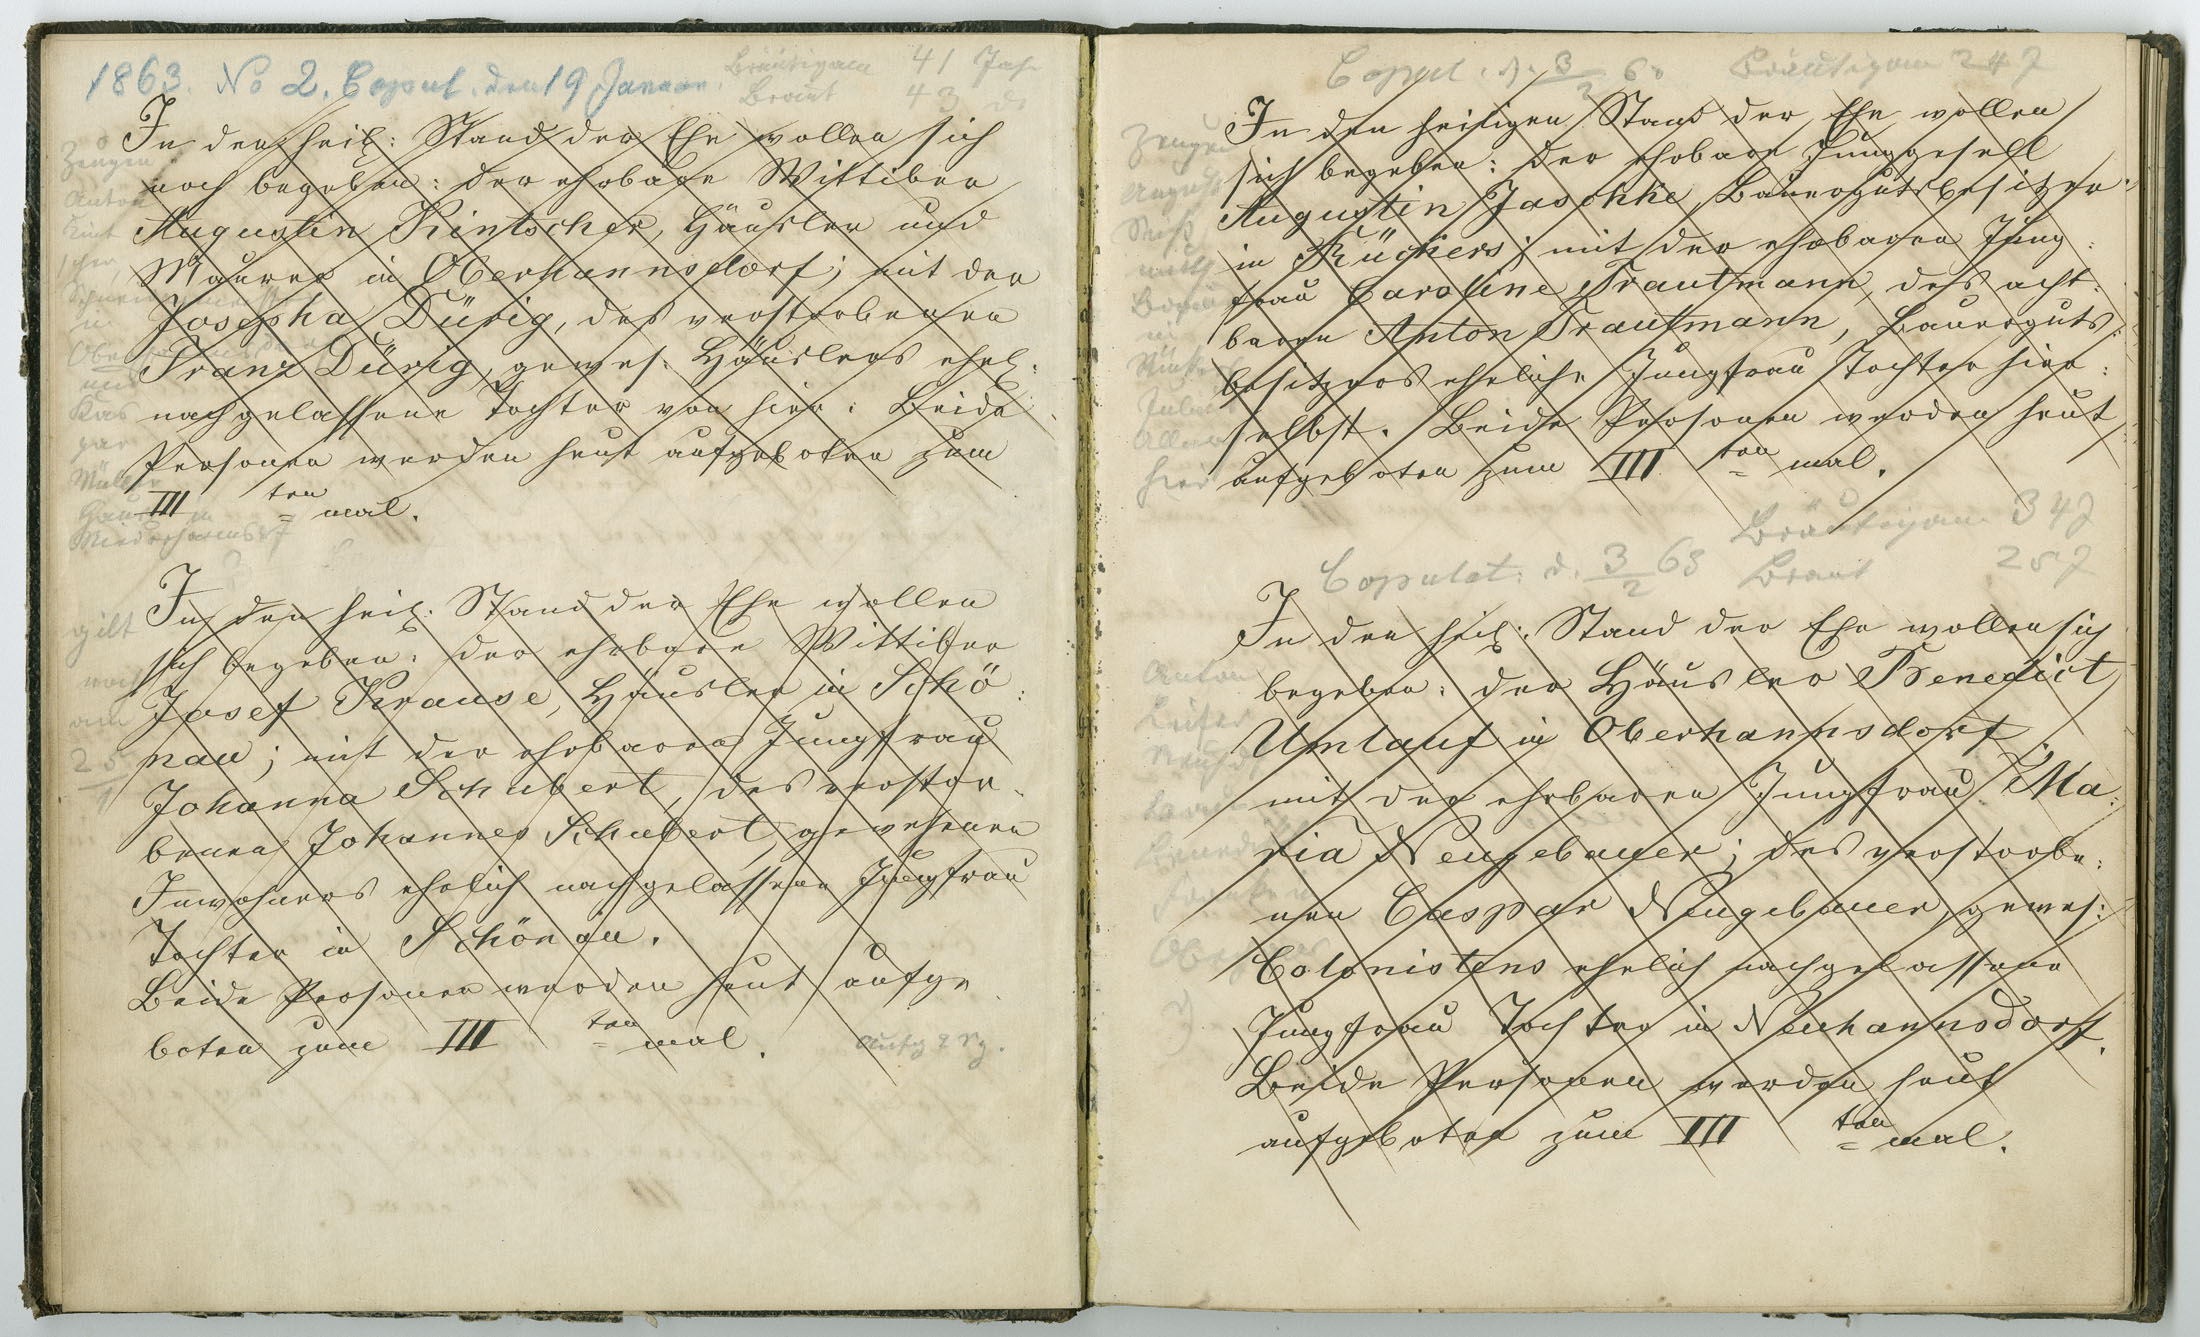 1863. No 2. Copul. den 19 Januar.
Bräutigam 41 Jahr
Braut 43 do
Zeugen
Anton
Kint
scher,
in
Ober
und
Kas
par
Müller
Niederhannsdf
In den heil: Stand der Ehe wollen sich
noch begeben: der ehrbare Wittiber
Augustin Kintscher, Häusler und
Maurer in Oberhannsdorf; mit der
Josepha Dürig, des verstorbenen
Franz Dürig, gewes. Häuslers ehel:
nachgelassene Tochter von hier. Beide
Personen werden heut aufgeboten zum
III ten mal.
gilt
noch
am
25
1
In den heil: Stand der Ehe wollen
sich begeben: der ehrbare Wittiber
Josef Krause, Häusler in Schö:
nau; mit der ehrbaren Jungfrau
Johanna Schubert, des verstor:
benen Johannes Schubert, gewesenen
Inwohners ehelich nachgelassene Jungfrau
Tochter in Schönau.
Beide Personen werden heut aufge
boten zum III ten mal.
Copul. d. 3/2 63 Bräutigam 24 J
Zeugen
August
in
hier
In den heiligen Stand der Ehe wollen
sich begeben: der ehrbare Junggesell
Augustin Jaschke, Bauergutsbesitzer
in Rückers; mit der ehrbaren Jung:
frau Caroline Trautmann, des acht:
baren Anton Trautmann, Bauerguts:
besitzers eheliche Jungfrau Tochter hier:
selbst. Beide Personen werden heut
aufgeboten zum III ten mal.
Bräutigam 34 J
Copulat: d. 3/2 63 Braut 25 J
Anton
In den heil: Stand der Ehe wollen sich
begeben: der Häusler Benedict
Umlauf in Oberhannsdorf,
mit der ehrbaren Jungfrau Ma:
ria Neugebauer; des verstorbe:
nen Caspar Neugebauer, gewes:
Colonistens ehelich nachgelassene
Jungfrau Tochter in Neuhannsdorf.
Beide Personen werden heut
aufgeboten zum III ten mal.